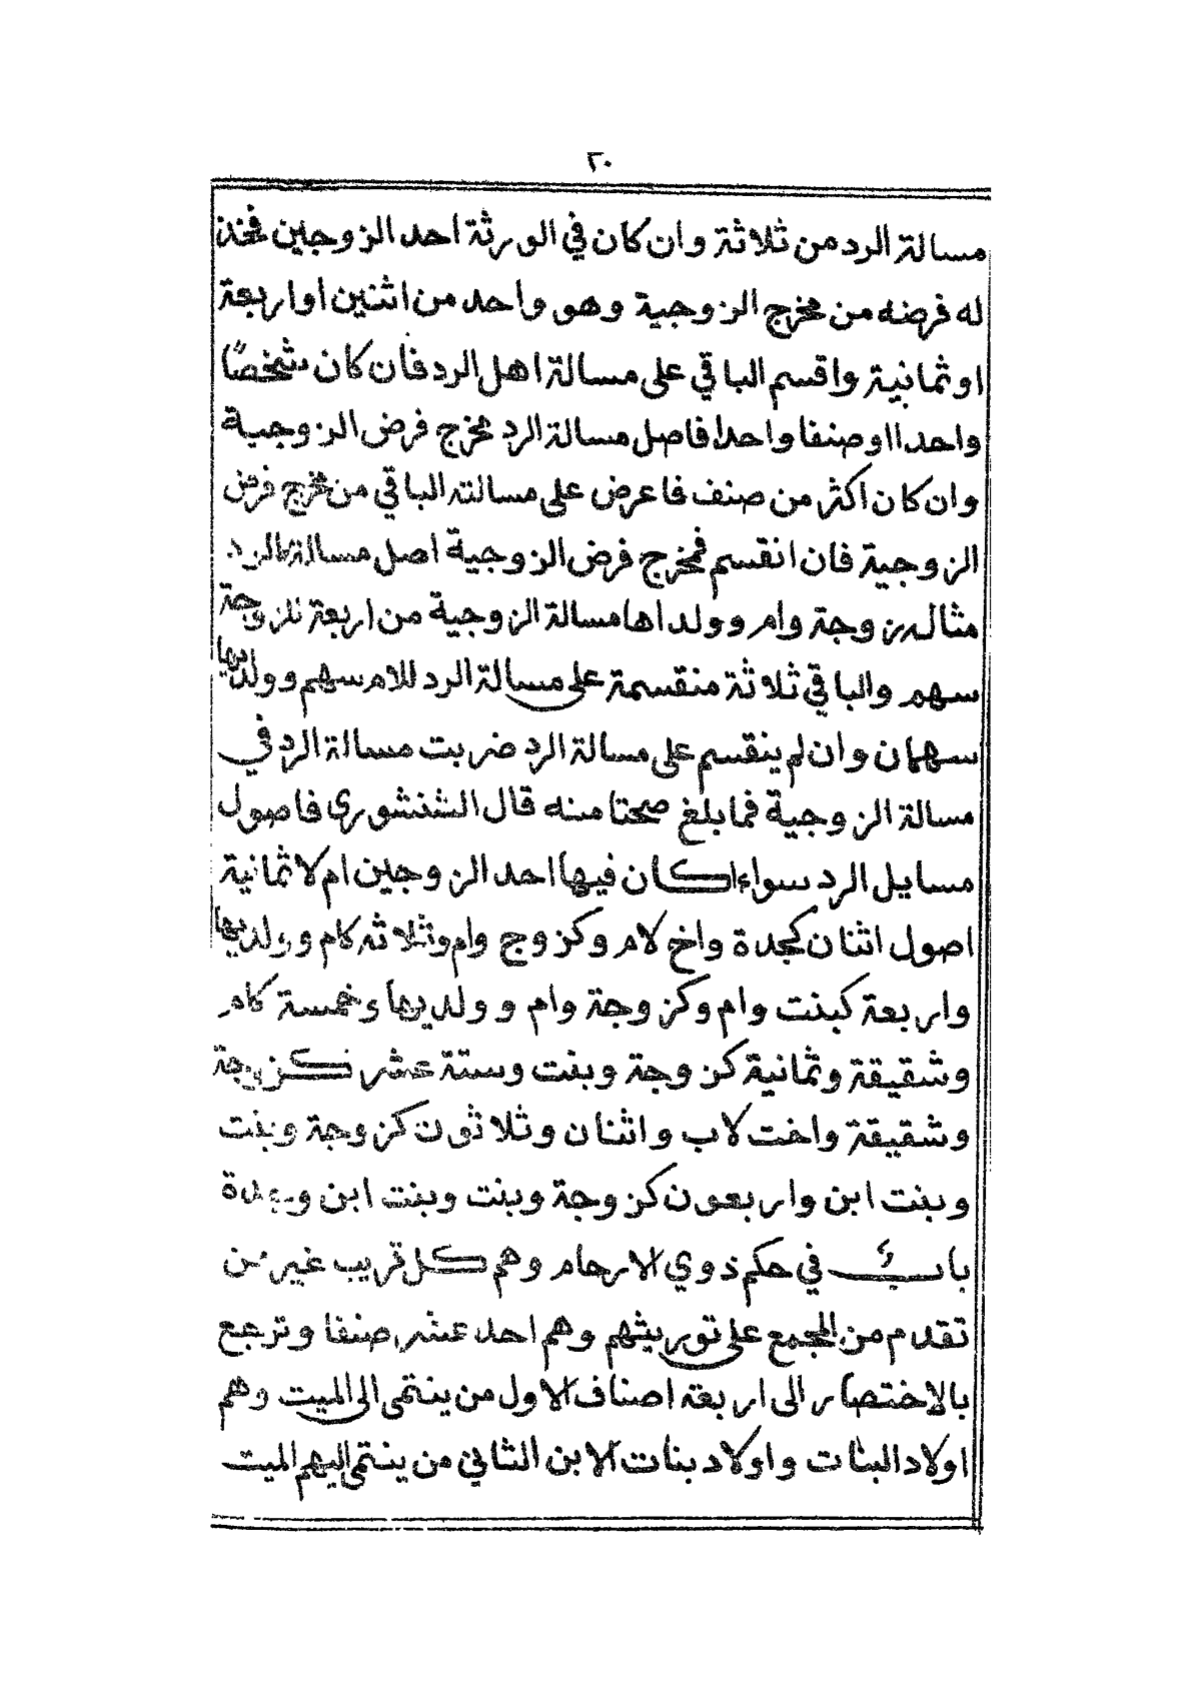 ٢٠
مسالة الرد من ثلاثة وان كان في الورثة احد الزوجين فخذ
له فرضه من مخرج الزوجية وهو واحد من اثنين او اربعة
او ثمانية واقسم الباقي على مسالة اهل الرد فان كان شخصًا
واحدا او صنفا واحدا فاصل مسالة الرد مخرج فرض الزوجية
وان كان اكثر من صنف فاعرض على مسالته الباقي من مخرج فرض
الزوجية فان انقسم فمخرج فرض الزوجية اصل مسالة الرد
مثاله زوجة وام وولداها مسالة الزوجية من اربعة للزوجة
سهم والباقي ثلاثة منقسمة على مسالة الرد للام سهم وولديها
سهمان وان لم ينقسم على مسالة الرد ضربت مسالة الرد في
مسالة الزوجية فما بلغ صحتا منه قال الشنشوري فاصول
مسايل الرد سواء كان فيها احد الزوجين ام لا ثمانية
اصول اثنان كجدة واخ لام وكزوج وام وثلاثه كام وولديها
واربعة كبنت وام وكزوجة وام و ولديها وخمسة كام
وشقيقة وثمانية كزوجة وبنت وستة عشر كزوجة
وشقيقة واخت لاب واثنان وثلاثون كزوجة وبنت
وبنت ابن واربعون كزوجة وبنت وبنت ابن وجدة
باب في حكم ذوي الارحام وهم كل قريب غير من
تقدم من المجمع على توريثهم وهم احد عشر صنفا وترجع
بالاختصار الى اربعة اصناف الاول من ينتمى الى الميت وهم
اولاد البنات واولاد بنات الابن الثاني من ينتمى اليهم الميت